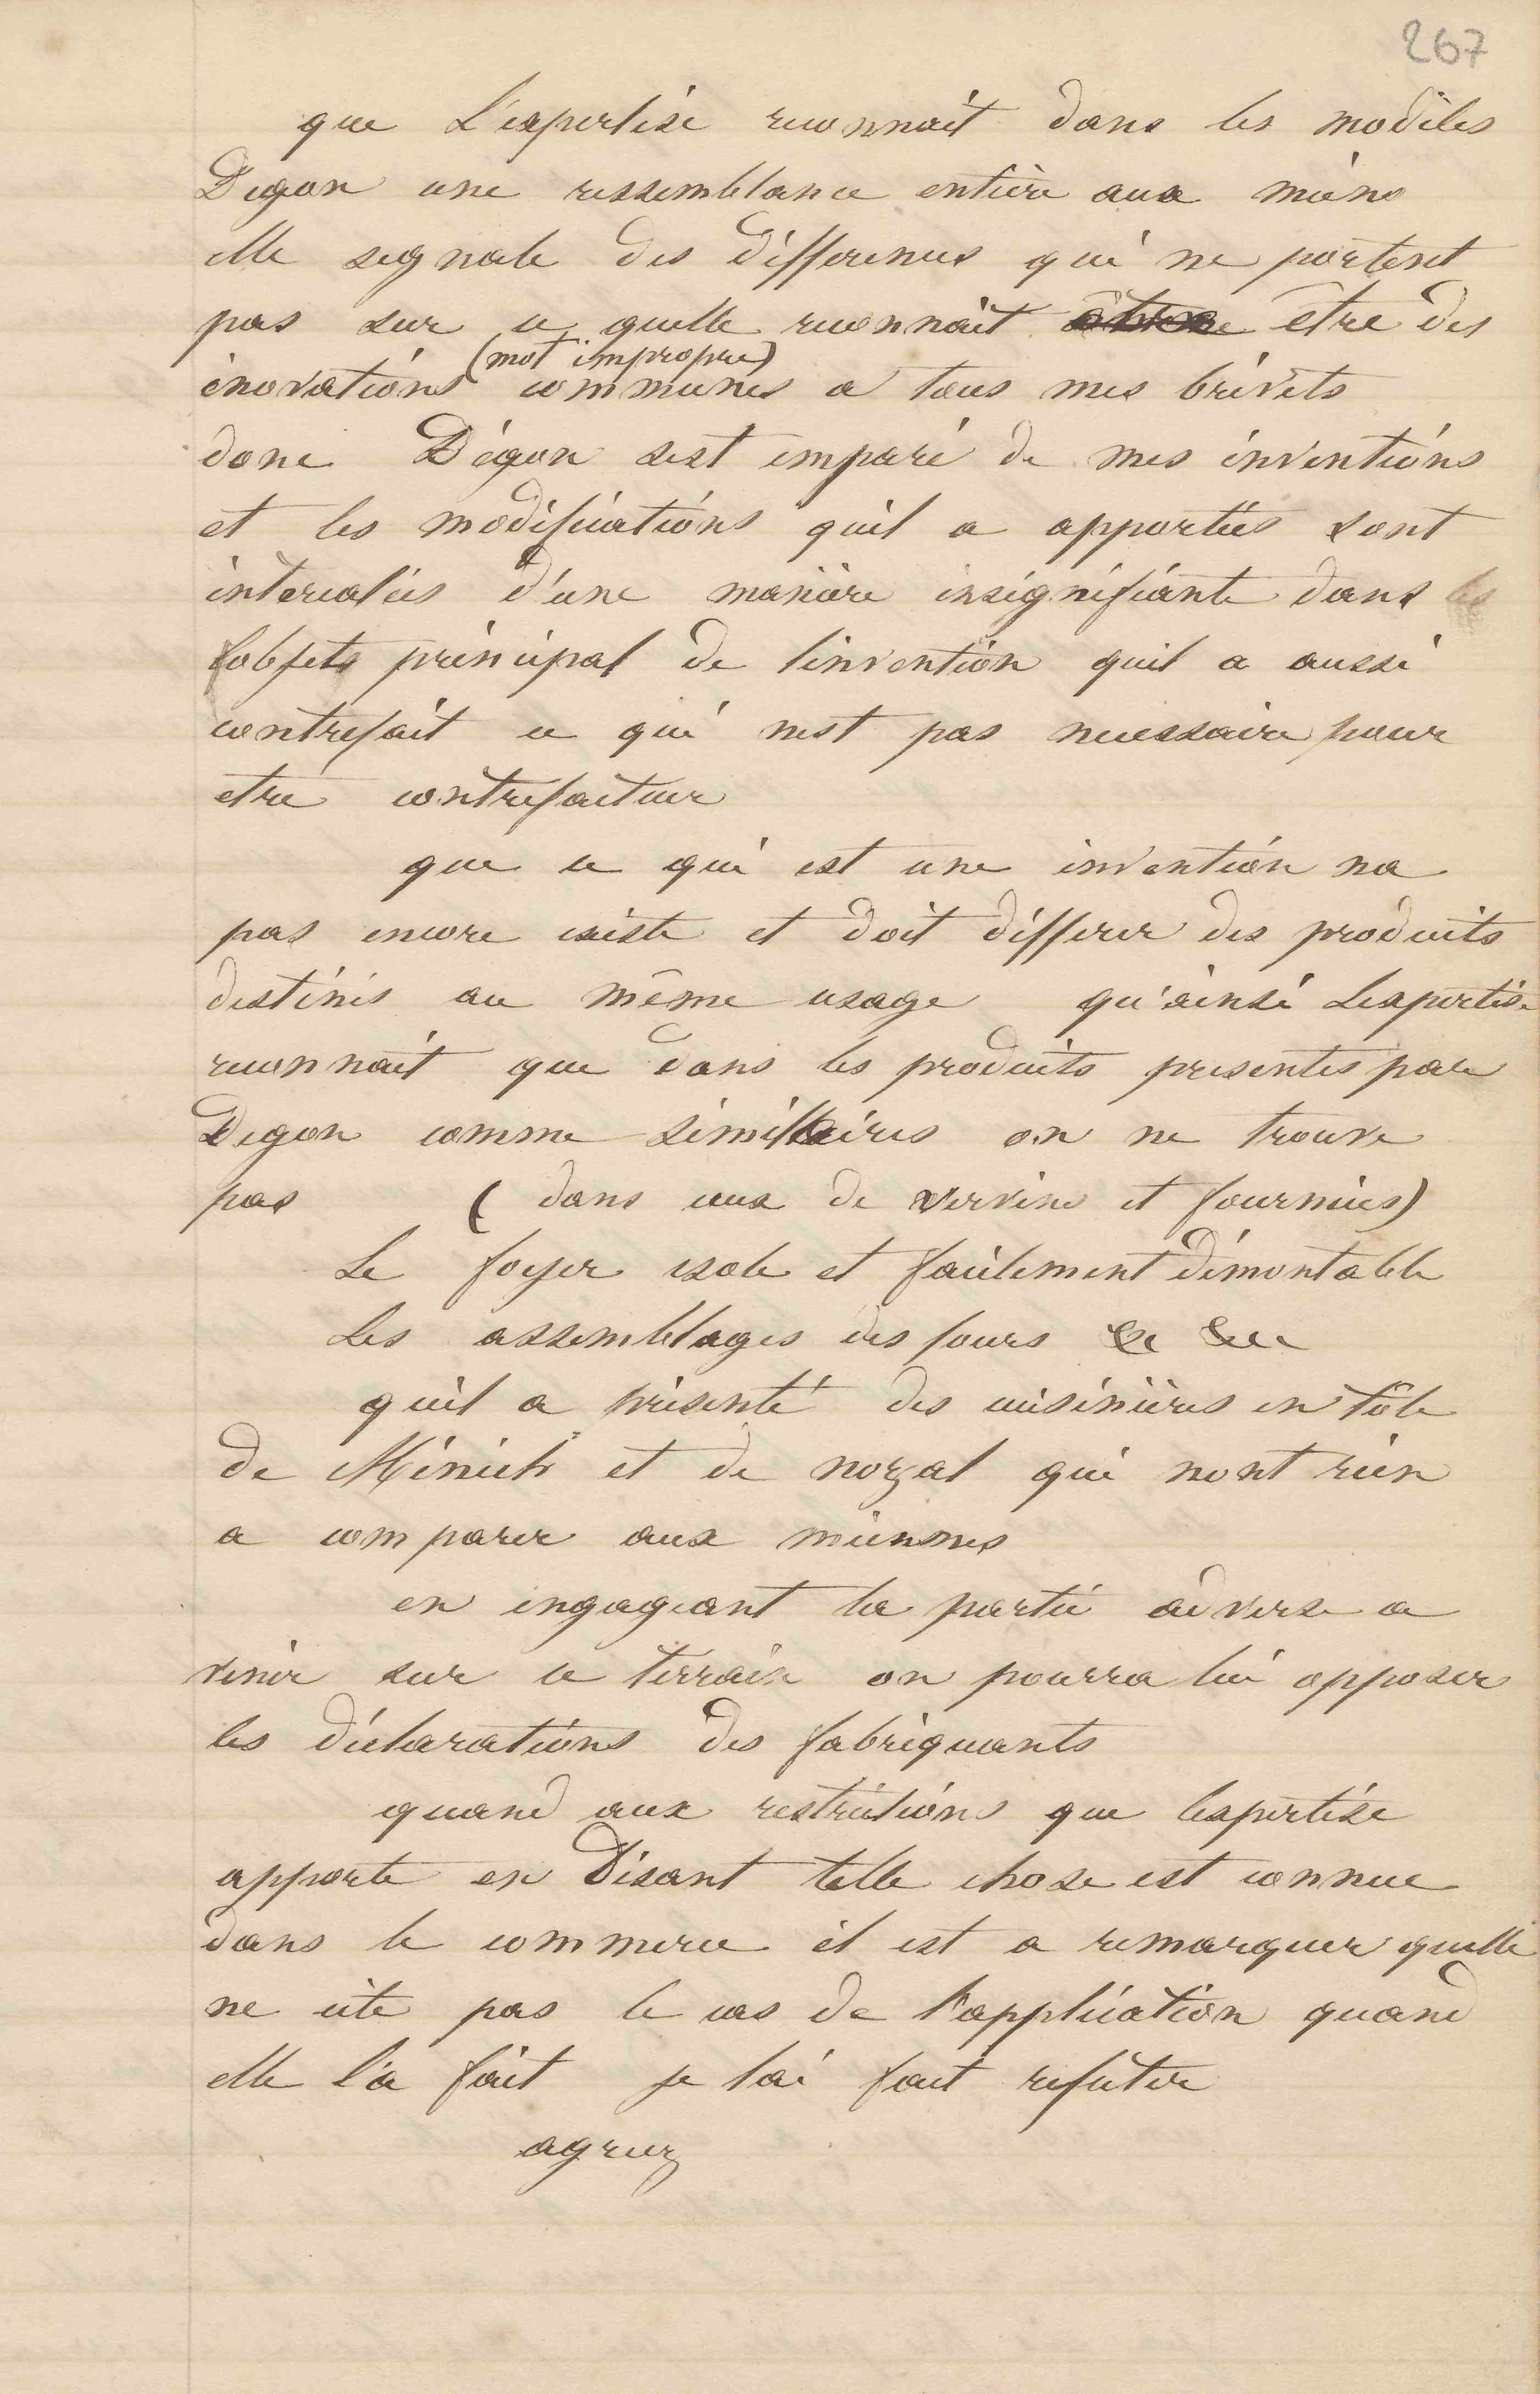 267
que L'expertise reconnait dans les modèles
Degon une ressemblance entière aux miens
elle segnale des differences qui ne portent
pas sur ce quelle reconnait être des
(mot impropre)
inovations communes a tous mes brévets
donc Dégon sest emparé de mes inventions
et les modifications quil a apportées sont
intercalées d'une manière insignifiante dans les
lobjets principal de linvention quil a aussi
contrefait ce qui nest pas necessaire pour
etre contrefacteur
que ce qui est une invention na
pas encore existe et doit differer des produits
destinés au même usage qu'ainsi Lexpertise
reconnait que dans les produits presentes par
Degon comme similaires on ne trouve
pas ( dans ceux de vervins et fourmies)
Le foyer isole et facilement démontable
Les assemblages des fours &c &c
quil a présenté des cuisinières en tôle
de Ménich et de nozal qui nont rien
a comparer aux miennes
en engageant la partie adverse a
venir sur ce terrain on pourra lui opposer
les déclarations des fabriquants
quand aux restrictions que lexpertise
apporte en Disant telle chose est connue
dans le commerce il est a remarquer quelle
ne cite pas le cas de l'application quand
elle l'a fait je lai fait refuter
agreez